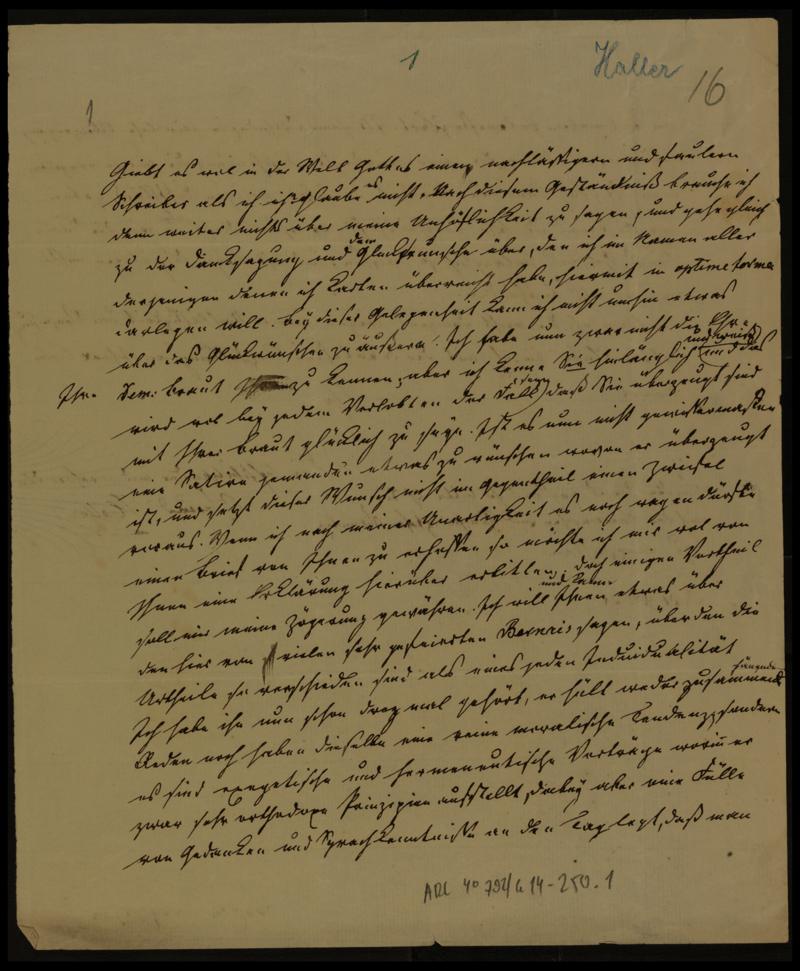 1
Haller
16
1
Giebt es wol in der Welt Gottes einen nachlässigern und faulern
Schreiber als ich ist glaube es nicht. Nach diesem Geständniß brauche ich
denn weiter nichts über meine Unhöflichkeit zu sagen, und gehe gleich
zu der Danksagung und dem Glückwunsche über, den ich im Namen aller
derjenigen denen ich Karten überreicht habe, hiermit in optima forma
darlegen will. Bey dieser Gelegenheit kann ich nicht umhin etwas
über das Glückwünschen zu äußern. Ich habe nun zwar nicht die Ehre
Ihre Dem. Braut zu kennen, aber ich kenne Sie hinlänglich und das
wird wol bey jedem Verlobten der Fall seyn daß Sie überzeugt sind
mit Ihrer Braut glücklich zu seyn. Ist es nun nicht gewissermassen
eine Satire jemanden etwas zu wünschen wovon er überzeugt
ist, und setzt dieser Wunsch nicht im Gegentheil einen Zweifel
voraus. Wenn ich nach meiner Unartigkeit es noch wagen dürfte
einen Brief von Ihnen zu erhoffen so möchte ich mir wol von
Ihnen eine Erklärung hierüber erbitten, doch einigen Vortheil
soll mir meine Zögerung gewähren. Ich will und kann Ihnen etwas über
den hier von vielen sehr gefeierten Bernris sagen, über den die
Urtheile so verschieden sind als eines jeden Induidualität
Ich habe ihn nun schon drey mal gehört, er hält weder zusammenhängende
Reden noch haben dieselbe eine reine moralische Tendenz, sondern
es sind exegetische und hermeneutische Vorträge worin er
zwar sehr orthodoxe Prinzipien aufstellt, dabey aber eine Fülle
von Gedanken und Sprachkenntniße an den Tag legt, daß man
ARC 4° 792/G 14-250.1